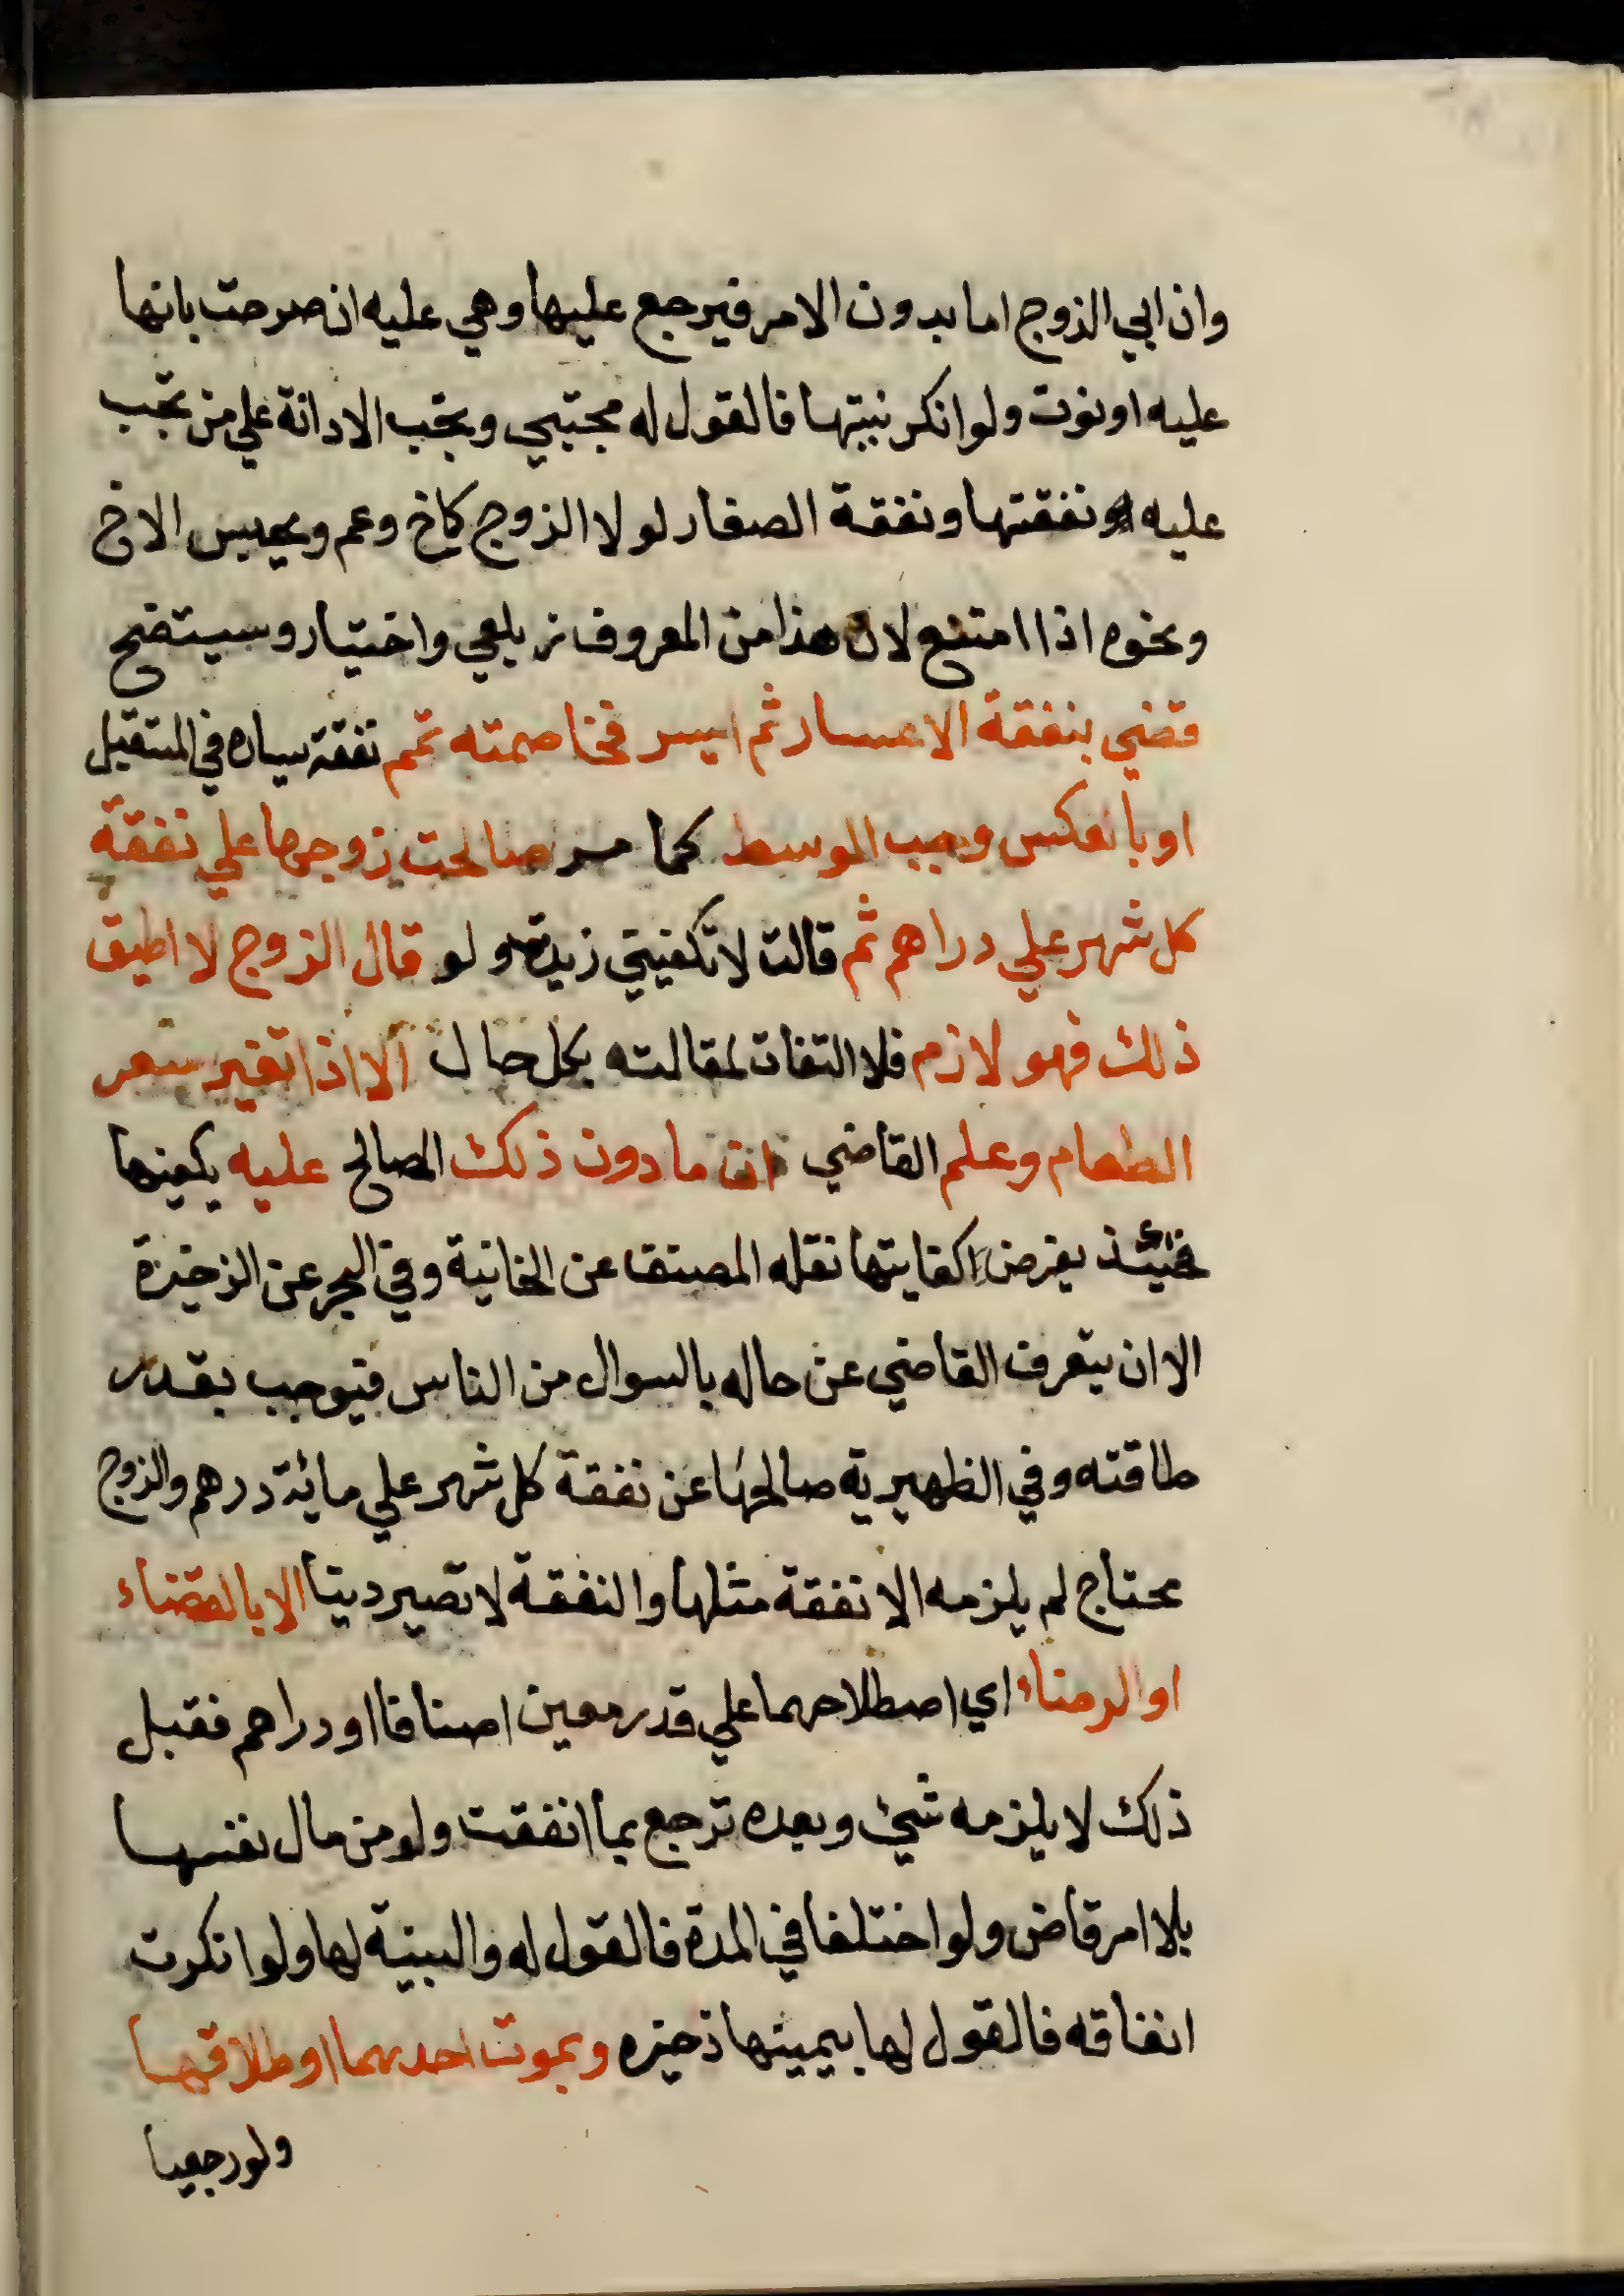 وان ابي الزوج اما بدون الامر فيرجع عليها وهي عليه ان صرحت بانها
عليه او نوت ولو انكر نيتها فالقول له مجتبي وتجب الادانة علي من تجب
عليه نفقتها ونفقة الصغار لولا الزوج كاخ وعم ويحبس الاخ
ونحوه اذا امتنع لان هذا من المعروف زيلعي واختيار وسيتضح
قضي بنفقة الاعسار ثم ايسر فخاصمته تمم نفقة يساره في المستقبل
او بالعكس وجب الوسط كما مر صالحت زوجها علي نفقة
كل شهر علي دراهم ثم قالت لا تكفيني زيدت ولو قال الزوج لا اطيق
ذلك فهو لازم فلا التفات لمقالته بكل حال الا اذا تغير سعر
الطعام وعلم القاضي ان ما دون ذلك المصالح عليه يكفيها
فحينئذ يفرض كفايتها نقله المصنف عن الخانية وفي البحر عن الذخيرة
الا ان يتعرف القاضي عن حاله بالسوال من الناس فيوجب بقدر
طاقته وفي الظهيرية صالحها عن نفقة كل شهر علي مائة درهم والزوج
محتاج لم يلزمه الا نفقة مثلها والنفقة لا تصير دينا الا بالقضاء
او الرضاء اي اصطلاحهما علي قدر معين اصنافا او دراهم فقبل
ذلك لا يلزمه شئ وبعده ترجع بما انفقت ولو من مال نفسها
بلا امر قاض ولو اختلفا في المدة فالقول له والبينة لها ولو انكرت
انفاقه فالقول لها بيمينها ذخيره وبموت احدهما او طلاقها
ولو رجعيا